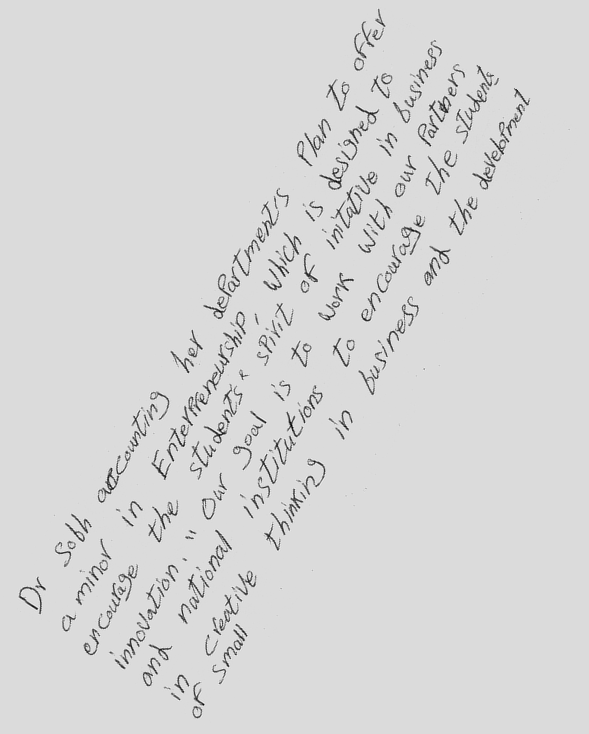 Dr Sobh accounting her department's Plan to offer
a minor in Enterpreneurship, which is designed to
encourage the students' spirit of initative in business
innovation. "Our goal is to work with our Partners
and national institutions to encourage the students
in creative thinking in business and the development
of small